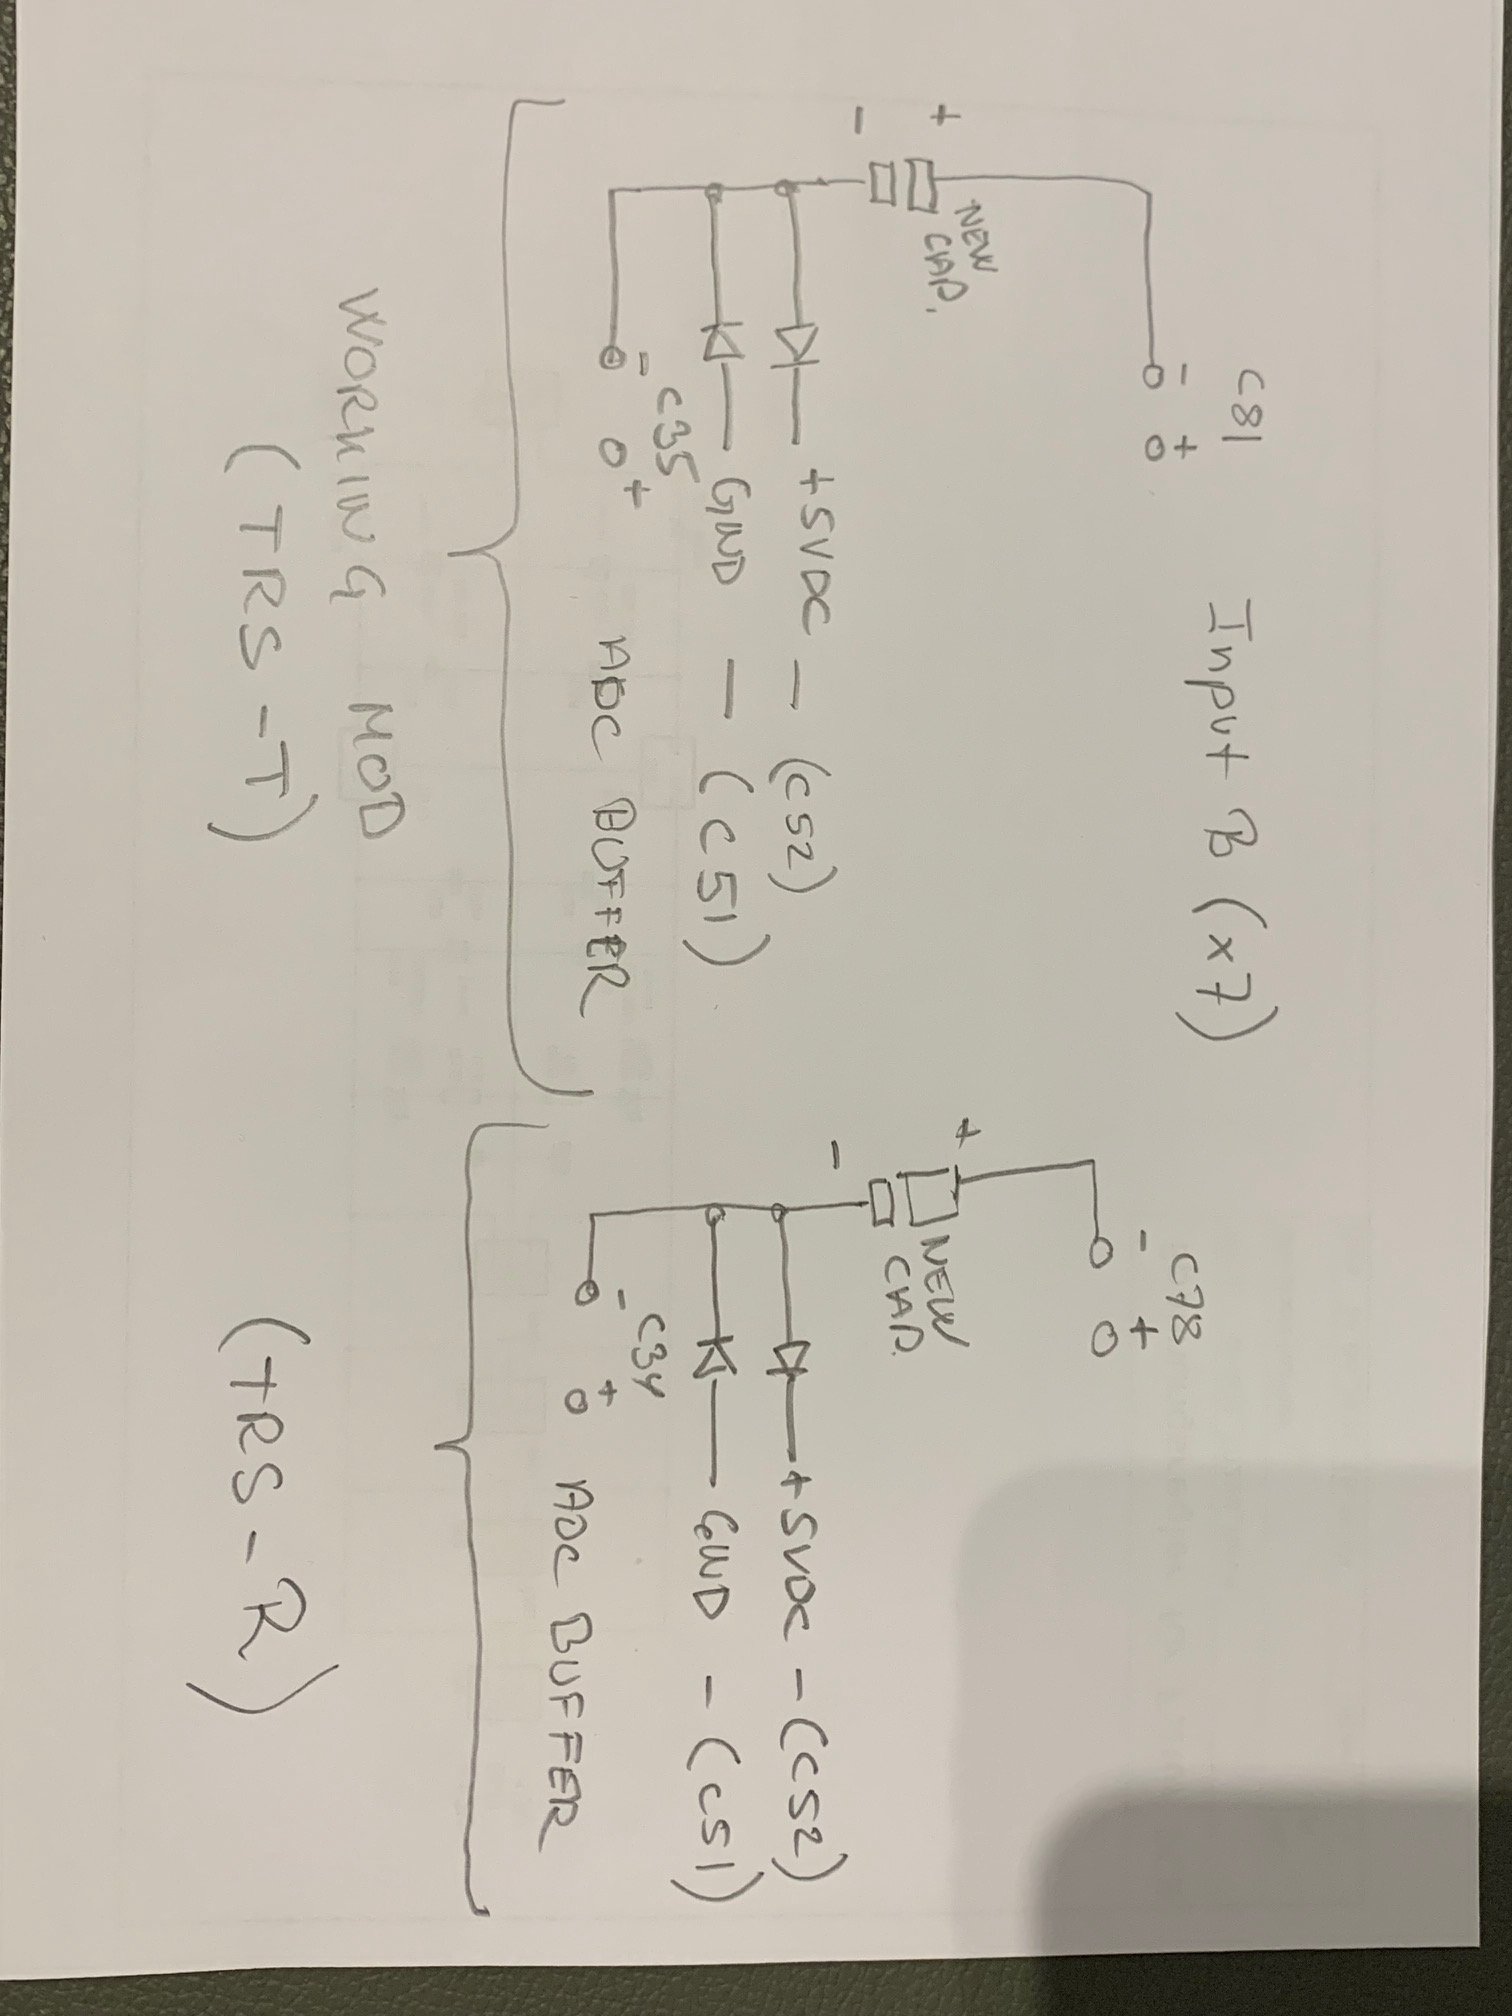 C81
- +
Input B (x7)
+
-
NEW
CAP.
+5VDC - (C52)
GND - (C51)
- C35 +
ADC BUFFER
WORKING MOD
(TRS-T)
C78
- +
+
-
NEW
CAP.
+5VDC - (C52)
GND - (C51)
- C34 +
ADC BUFFER
(TRS-R)